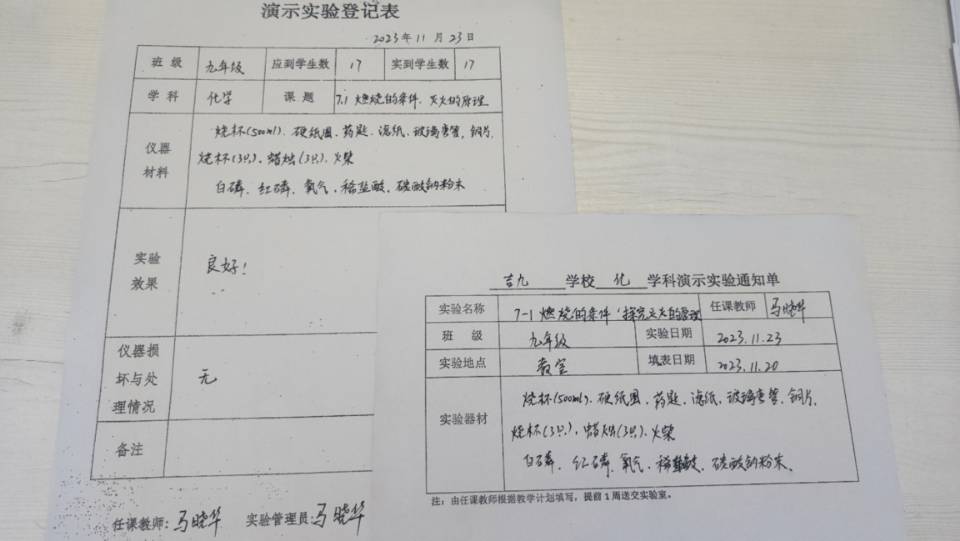 演示实验登记表
2023年11月23日
班 级 九年级 应到学生数 17 实到学生数 17
学 科 化学 课 题 7.1 燃烧的条件、灭火的原理
仪器材料
烧杯(500ml)、硬纸圈、药匙、滤纸、玻璃导管、铜片、
烧杯(3只)、蜡烛(3只)、火柴
白磷、红磷、氧气、稀盐酸、碳酸钠粉末
实验效果
良好!
仪器损坏与处理情况
无
备注
任课教师:马晓华 实验管理员:马晓华
吉九 学校 化 学科演示实验通知单
实验名称 7-1 燃烧的条件、探究灭火的原理 任课教师 马晓华
班 级 九年级 实验日期 2023.11.23
实验地点 教室 填表日期 2023.11.20
实验器材
烧杯(500ml)、硬纸圈、药匙、滤纸、玻璃导管、铜片,
烧杯(3只)、蜡烛(3只)、火柴
白磷、红磷、氧气、稀盐酸、碳酸钠粉末、
注:由任课教师根据教学计划填写,提前1周送交实验室。